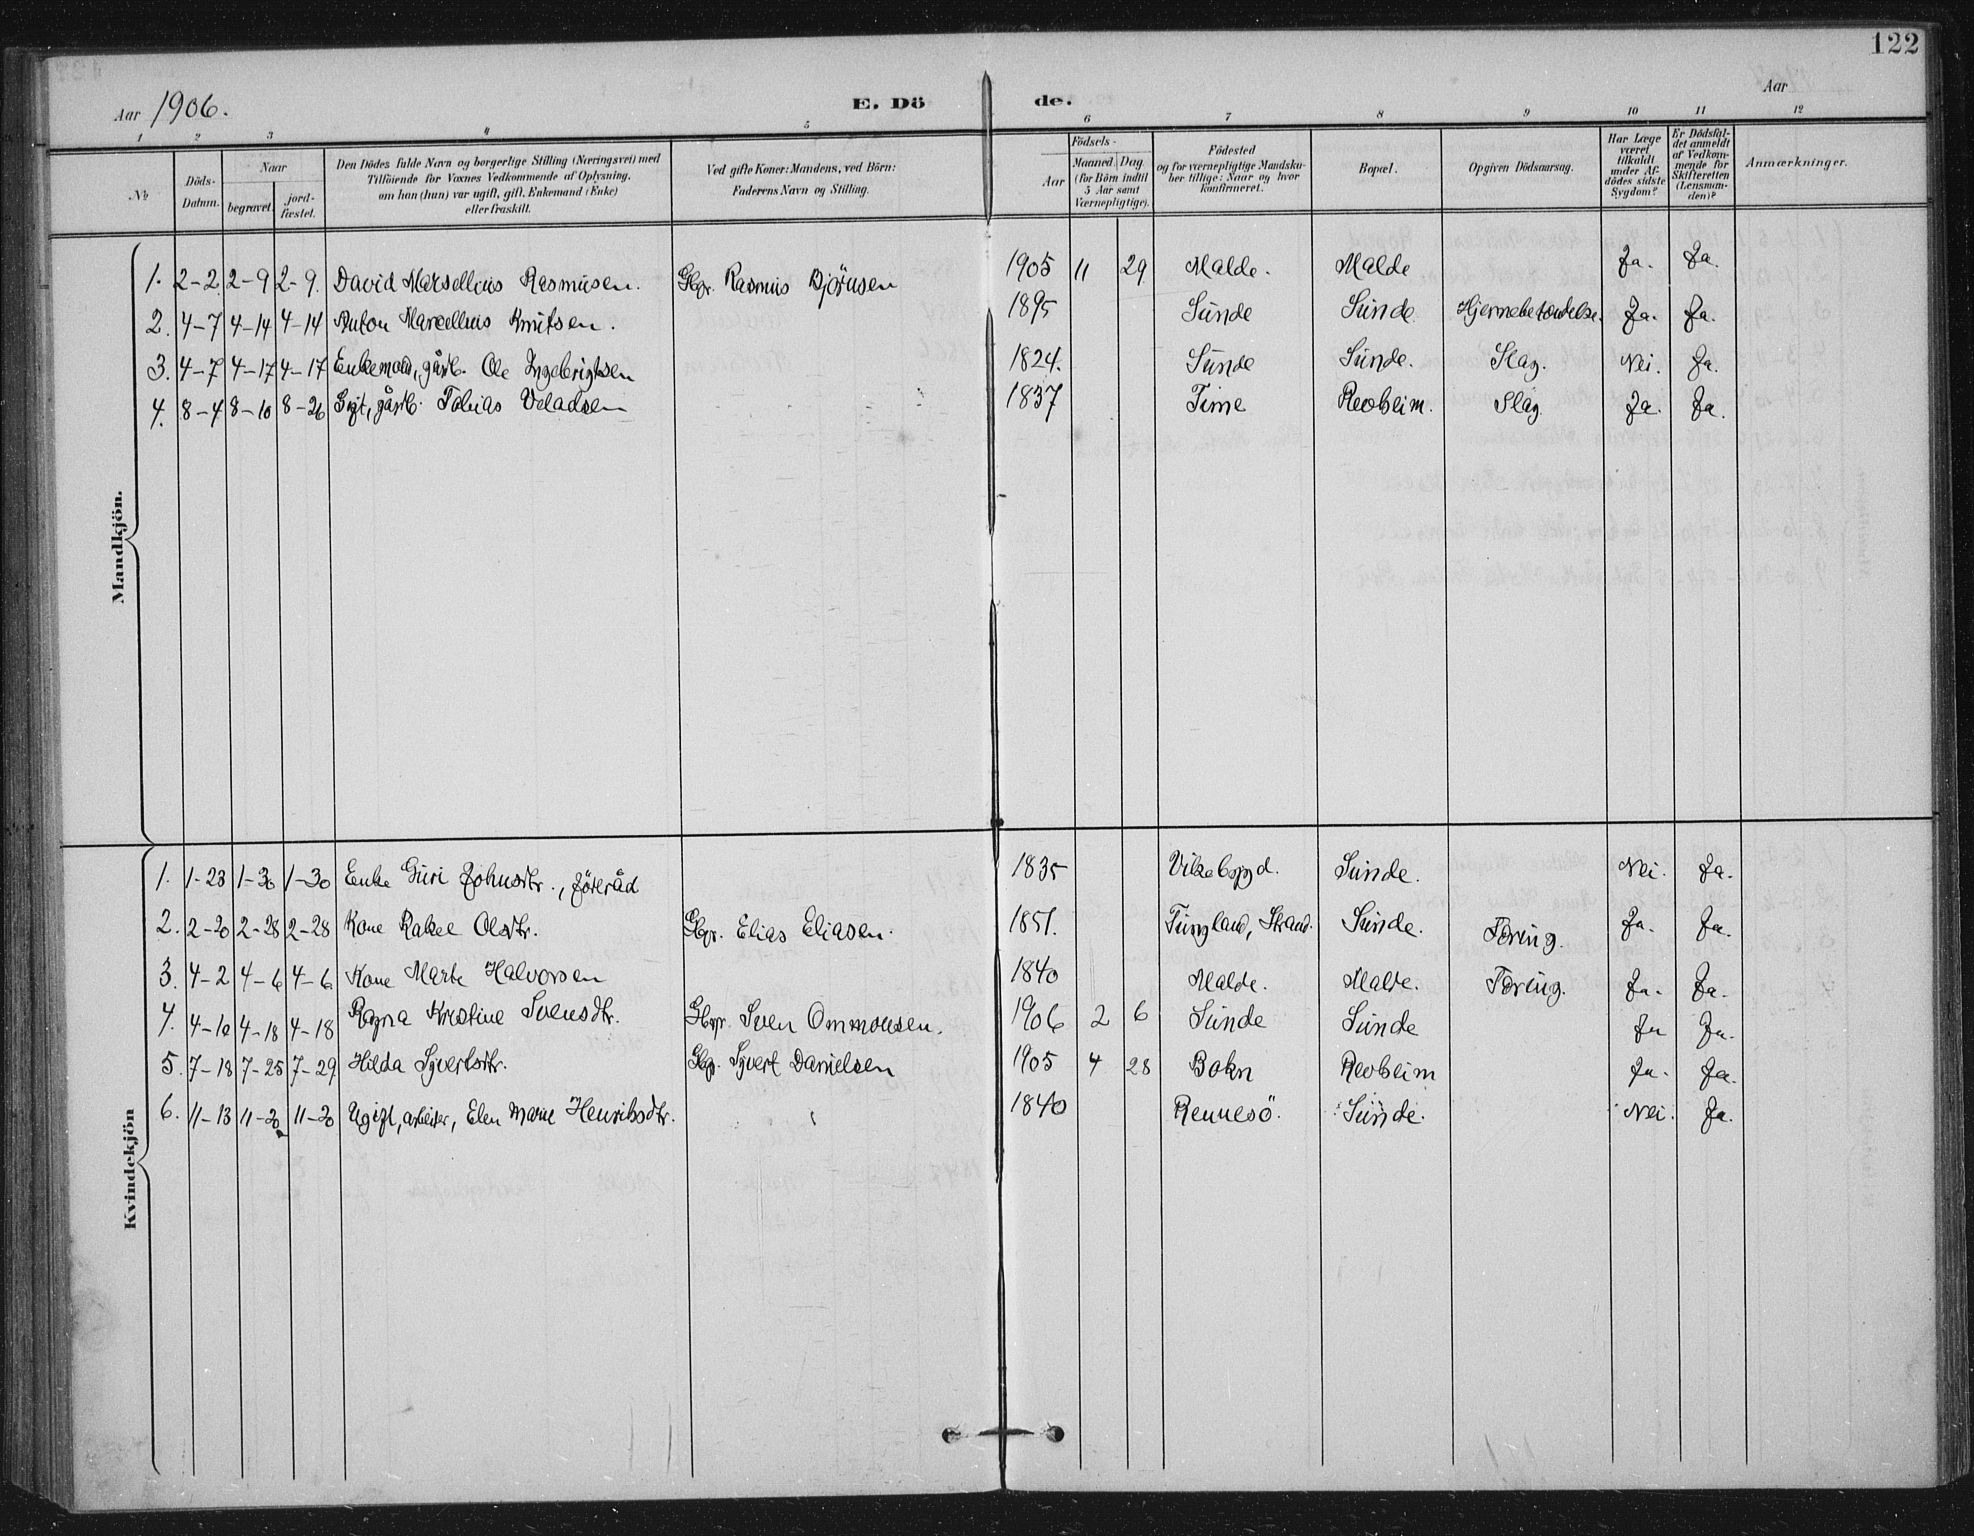 122
Aar 1906. E. Dö de. Aar
1 2 3 4 5 6 7 8 9 10 11 12
№ Döds-Datum. Naar begravet. jord-fæstet. Den Dödes fulde Navn og borgerlige Stilling (Næringsvei) med Tilföiende for Voxnes Vedkommende af Oplysning, om han (hun) var ugift, gift, Enkemand (Enke) eller fraskilt. Ved gifte Koner: Mandens, ved Börn: Faderens Navn og Stilling. Födsels- Aar Maaned. Dag. (for Börn indtil 5 Aar samt Værnepligtige). Födested og for værnepligtige Mandskaber tillige: Naar og hvor konfirmeret. Bopæl. Opgiven Dödsaarsag. Har Læge været tilkaldt under Afdödes sidste Sygdom? Er Dödsfaldet anmeldt af Vedkommende for Skifteretten (Lensmanden)? Anmærkninger.
Mandkjön.
1. 2-2 2-9 2-9. David Marsellius Rasmusen. Gbr. Rasmus Björnsen 1905 11 29 Malde. Malde Ja. Ja.
2. 4-7 4-14 4-14 Anton Marcellius Knutsen. 1895 Sünde Sünde Hjernebetændelse. Ja. Ja.
3. 4-7 4-17 4-17 Enkemand, gårb. Ole Ingebrigtsen 1824. Sünde Sünde. Slag. Nei. Ja.
4. 8-4 8-10 8-26 Gift, gårb. Tobias Veladsen 1837 Time Revheim. Slag. Ja. Ja.
Kvindekjön
1. 1-23 1-30 1-30 Enke Guri Johnsdtr., föderåd 1835 Vikebygd. Sünde. Nei. Ja.
2. 2-20 2-28 2-28 Kone Rakel Olsdtr. Gbr. Elias Eliasen. 1851. Tungland, Strand. Sünde. Tæring. Ja. Ja.
3. 4-2 4-6 4-6 Kone Marte Halvorsen 1840 Malde. Malde. Tæring. Ja. Ja.
4. 4-10 4-18 4-18 Ragna Kristine Svensdtr. Gbr. Sven Ommonsen. 1906 2 6 Sünde Sünde Ja Ja.
5. 7-18 7-25 7-29 Hilda Syvertsdtr. Gbr. Syvert Danielsen 1905 4 28 Bokn Revheim Ja. Ja.
6. 11-13 11-20 11-20 Ugift, arbeider, Elen Marie Henriksdtr. 1840 Rennesö. Sünde. Nei. Ja.